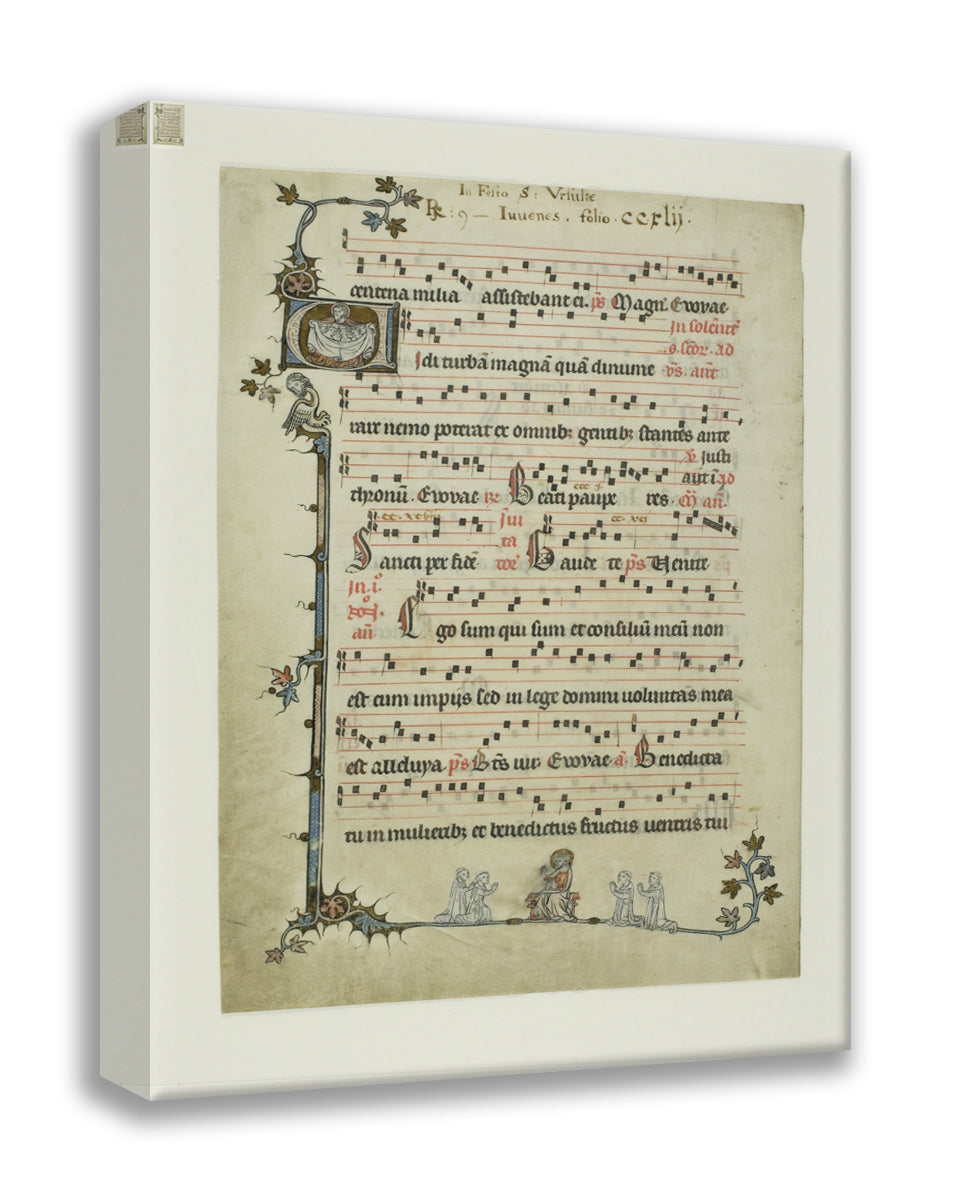 In Festo S: Vrsulae
R: 9 — Iuuenes . folio . ccxlij .
centena milia assistebant ei. p̄s Magn̄. Evovae
In solēnitē
o. scōr. ad
Vidi turbā magnā quā dinume v̄s. anē
rare nemo poterat ex omnibꝫ gentibꝫ stantes ante
v̄ Justi
autē ī ad
thronū. Evovae Beati paupe res. m̄ an̄.
cc. xci
Jnui
ta
Sancti per fidē tor̄ Gaude te p̄s Venite
Jn. i.
an̄ Ego sum qui sum et consiliū meū non
est cum impijs sed in lege domini uoluntas mea
est alleluya p̄s B̄ts uir Evovae a. Benedicta
tu in mulieribꝫ et benedictus fructus uentris tui